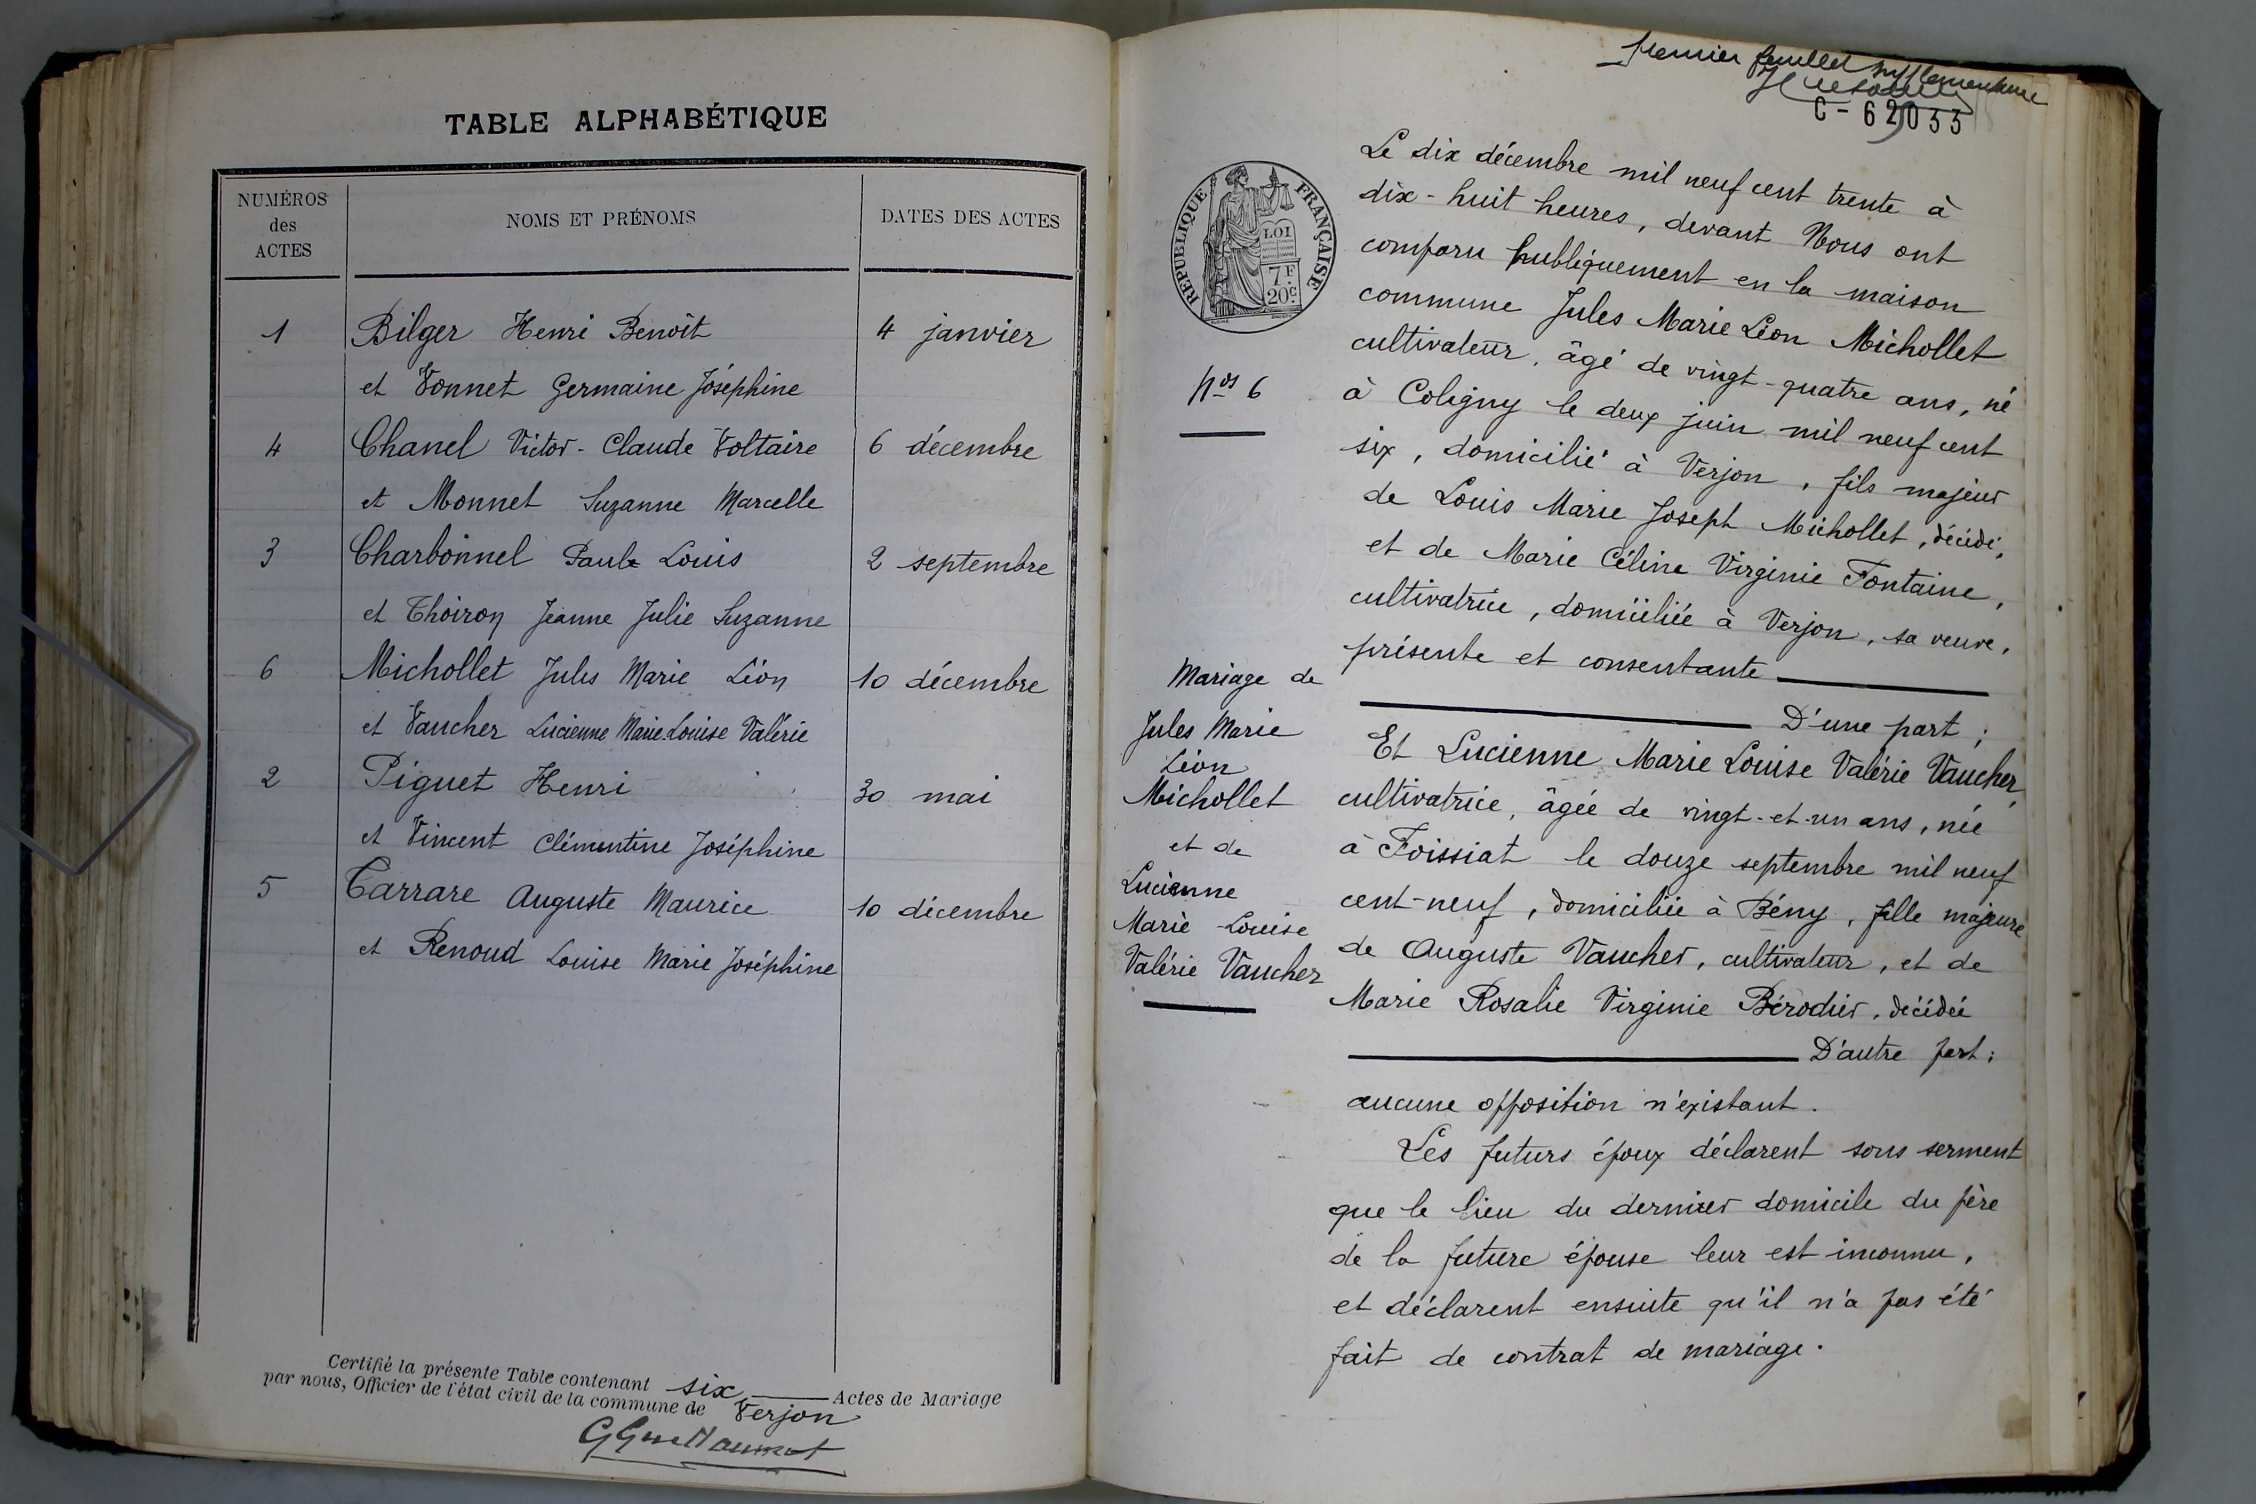 TABLE ALPHABÉTIQUE
NUMÉROS
des
ACTES
NOMS ET PRÉNOMS
DATES DES ACTES
1 Bilger Henri Benoît 4 janvier
et Vonnet Germaine Joséphine
4 Chanel Victor-Claude Voltaire 6 décembre
et Monnet Suzanne Marcelle
3 Charbonnel Paul Louis 2 septembre
et Thoiron Jeanne Julie Suzanne
6 Michollet Jules Marie Léon 10 décembre
et Vaucher Lucienne Marie-Louise Valérie
2 Piguet Henri 30 mai
et Vincent Clémentine Joséphine
5 Carrare Auguste Maurice 10 décembre
et Renoud Louise Marie Joséphine
Certifié la présente Table contenant six Actes de Mariage
par nous, Officier de l'état civil de la commune de Verjon
premier feuillet supplémentaire
C-62033
RÉPUBLIQUE FRANÇAISE
LOI
7F
20c
Nos 6
Mariage de
Jules Marie
Léon
Michollet
et de
Lucienne
Marie-Louise
Valérie Vaucher
Le dix décembre mil neuf cent trente à
dix-huit heures, devant Nous ont
comparu publiquement en la maison
commune Jules Marie Léon Michollet
cultivateur, âgé de vingt-quatre ans, né
à Coligny le deux juin mil neuf cent
six, domicilié à Verjon, fils majeur
de Louis Marie Joseph Michollet, décédé,
et de Marie Céline Virginie Fontaine,
cultivatrice, domiciliée à Verjon, sa veuve,
présente et consentante
D'une part;
Et Lucienne Marie Louise Valérie Vaucher,
cultivatrice, âgée de vingt-et-un ans, née
à Foissiat le douze septembre mil neuf
cent-neuf, domiciliée à Bény, fille majeure
de Auguste Vaucher, cultivateur, et de
Marie Rosalie Virginie Bérodier, décédée
D'autre part;
aucune opposition n'existant.
Les futurs époux déclarent sous serment
que le lieu du dernier domicile du père
de la future épouse leur est inconnu,
et déclarent ensuite qu'il n'a pas été
fait de contrat de mariage.